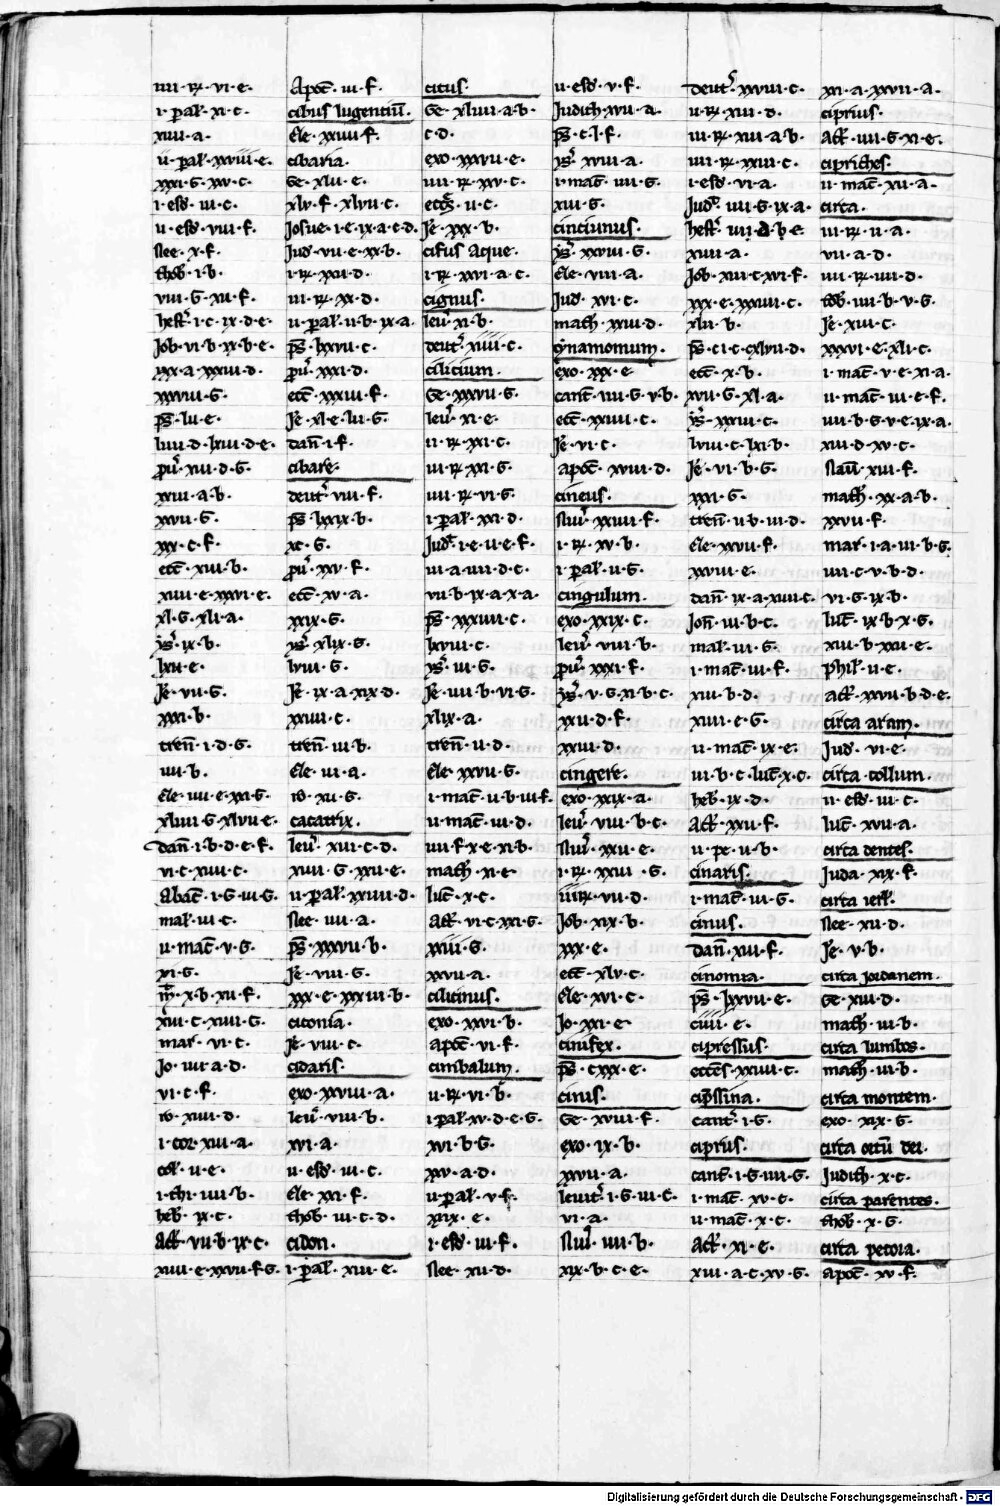 iiii · R · vi · e ·
i · pal · xi · c ·
xiiii · a ·
ii · pal · xxviii · e ·
xxxi · G · xv · c ·
i · esd · iii · c ·
ii · esd · viii · f ·
Nee · x · f ·
thob · i · b ·
viii · G · xii · f ·
hest · i · c · ix · d · e ·
Job · vi · b · ix · b · e ·
xxx · a · xxxiii · d ·
xxxviii · G ·
ps · lii · e ·
liiii · d · lxiii · d · e ·
pu · xiii · d · G ·
xxiii · a · b ·
xxvii · G ·
xxx · c · f ·
ecc · xiii · b ·
xiiii · e · xxxvi · e ·
xl · G · xli · a ·
ys · ix · b ·
lxii · e ·
Je · vii · G ·
xxxi · b ·
tren · i · d · G ·
iiii · b ·
Eze · iiii · e · xxi · G ·
xliiii · G · xlvii · e ·
dan · i · b · d · e · f ·
vi · c · xiiii · c ·
Abac · i · G · iii · G ·
mal · iii · c ·
ii · mac · v · G ·
xi · G ·
m · x · b · xii · f ·
xiii · c · xiiii · G ·
mar · vi · c ·
Jo · iiii · a · d ·
vi · c · f ·
ro · xiiii · d ·
i · cor · xiii · a ·
col · ii · e ·
i · thi · iiii · b ·
heb · ix · c ·
act · vii · b · ix · c ·
xiiii · e · xxvii · f · G ·
Apoc · iii · f ·
cibus lugentium ·
Eze · xxiiii · f ·
cibaria ·
Ge · xlii · e ·
xlv · f · xlvii · c ·
Josue · i · e · ix · a · e · d ·
Jud · vii · e · xx · b ·
i · R · xxii · d ·
iii · R · xx · d ·
ii · pal · ii · b · ix · a ·
ps · lxxvii · c ·
pu · xxxi · d ·
ecc · xxxiii · f ·
Je · xl · e · lii · G ·
dan · i · f ·
cibare ·
deut · viii · f ·
ps · lxxix · b ·
xc · G ·
pu · xxv · f ·
ecc · xv · a ·
xxix · G ·
ys · xlix · G ·
lviii · G ·
Je · ix · a · xix · d ·
xxiii · c ·
tren · iii · b ·
Eze · iii · a ·
ro · xii · G ·
cacatrix ·
leu · xiii · c · d ·
xiiii · G · xxii · e ·
ii · pal · xxviii · d ·
Nee · iiii · a ·
ps · xxxvii · b ·
Je · viii · G ·
xxx · e · xxxiii · b ·
ciconia ·
Je · viii · c ·
cidaris ·
exo · xxviii · a ·
leu · viii · b ·
xvi · a ·
ii · esd · iii · c ·
Eze · xxi · f ·
thob · iii · c · d ·
cidon ·
i · pal · xiii · e ·
citus ·
Ge · xliiii · a · b ·
c · d ·
exo · xxxvii · e ·
iiii · R · xxv · c ·
eccs · ii · c ·
Je · xxx · b ·
cifus aque ·
i · R · xxvi · a · c ·
cignus ·
leu · xi · b ·
deut · xiiii · c ·
cilicium ·
Ge · xxxvii · G ·
leu · xi · e ·
ii · R · xxi · c ·
iii · R · xxi · G ·
iiii · R · vi · G ·
i · pal · xxi · d ·
Jud · i · e · ii · e · f ·
iii · a · iiii · d · c ·
vii · b · ix · a · x · a ·
ps · xxxiiii · c ·
lxviii · c ·
ys · iii · G ·
Je · iiii · b · vi · G ·
xlix · a ·
tren · ii · d ·
Eze · xxvii · G ·
i · mac · ii · b · iii · f ·
ii · mac · iii · d ·
iiii · f · x · e · xi · b ·
math · xi · e ·
luc · x · c ·
act · vi · c · xxi · G ·
xxiii · G ·
xxvii · a ·
cilicinus ·
exo · xxvi · b ·
apoc · vi · f ·
cimbalum ·
ii · R · vi · b ·
i · pal · xv · d · e · G ·
xvi · b · G ·
xxv · a · d ·
ii · pal · v · f ·
xxix · e ·
i · esd · iii · f ·
Nee · xii · d ·
ii · esd · v · f ·
Judith · xvi · a ·
ps · c · l · f ·
ys · xviii · a ·
i · mac · iiii · G ·
xiii · G ·
cincinnus ·
ys · xxviii · G ·
Eze · viii · a ·
Jud · xvi · c ·
math · xxiii · d ·
cynamomum ·
exo · xxx · e ·
cant · iiii · G · v · b ·
ecc · xxiiii · c ·
Je · vi · c ·
apoc · xviii · d ·
cineus ·
Nu · xxiiii · f ·
i · R · xv · b ·
i · pal · ii · G ·
cingulum ·
exo · xxix · c ·
leu · viii · b ·
pu · xxxi · f ·
ys · v · G · xi · b · c ·
xxii · d · f ·
xxiii · d ·
cingere ·
exo · xxix · a ·
leu · viii · b · c ·
Nu · xxii · e ·
i · R · xxiii · G ·
iii · R · vii · d ·
Job · xix · b ·
xxx · e ·
ecc · xlv · c ·
Eze · xvi · c ·
Jo · xxi · e ·
cinifex ·
ps · cxxx · e ·
cinis ·
Ge · xviii · f ·
exo · ix · b ·
xxvii · a ·
leuit · i · G · iii · c ·
vi · a ·
Nu · iiii · b ·
xix · b · c · e ·
deut · xxviii · c ·
ii · R · xiii · d ·
iii · R · xiii · a · b ·
iiii · R · xxiii · c ·
i · esd · vi · a ·
Jud · iiii · G · ix · a ·
hest · iiii · a · b · c ·
xiiii · a ·
Job · xiii · c · xvi · f ·
xxx · e · xxxiiii · c ·
xlii · b ·
ps · c · i · c · cxlvii · d ·
ecc · x · b ·
xvii · G · xl · a ·
ys · xxxiii · c ·
lviii · c · lxi · b ·
Je · vi · b · G ·
xxxi · G ·
tren · ii · b · iii · d ·
Eze · xxvii · f ·
xxviii · e ·
dan · ix · a · xiiii · c ·
Jon · iii · b · c ·
mal · iii · G ·
i · mac · iii · f ·
xiii · b · d ·
xiiii · e · G ·
ii · mac · ix · e ·
iii · b · c · luc · x · c ·
heb · ix · d ·
Act · xxii · f ·
ii · pe · ii · b ·
cinaris ·
i · mac · iii · G ·
cinus ·
dan · xiii · f ·
cinomia ·
ps · lxxvii · e ·
ciiii · e ·
cipressus ·
eccs · xxiiii · c ·
cipressina ·
cant · i · G ·
ciprus ·
cant · i · G · iiii · G ·
i · mac · xv · c ·
ii · mac · x · c ·
Act · xi · e ·
xiii · a · c · xv · G ·
xxi · a · xxvii · a ·
ciprius ·
act · iiii · G · xi · e ·
cipriches ·
ii · mac · xii · a ·
circa ·
iii · R · ii · a ·
vii · a · d ·
iiii · R · iiii · d ·
tob · iiii · b · v · G ·
Je · xiii · c ·
xxxvi · e · xli · c ·
i · mac · v · e · xi · a ·
ii · mac · iii · e · f ·
iiii · b · G · v · e · ix · a ·
xii · d · xv · c ·
Naū · xiii · f ·
math · xx · a · b ·
xxvii · f ·
mar · i · a · iii · b · G ·
iiii · c · v · b · d ·
vi · G · ix · b ·
luc · ix · b · x · G ·
xii · b · xxii · e ·
phil · ii · e ·
act · xxvii · b · d · e ·
circa aram ·
Jud · vi · e ·
circa collum ·
ii · esd · iii · c ·
luc · xvii · a ·
circa dentes ·
Juda · xix · f ·
circa ierl ·
Nee · xii · d ·
Je · v · b ·
circa jordanem ·
Ge · xiii · d ·
math · iii · b ·
circa lumbos ·
math · iii · b ·
circa montem ·
exo · xix · G ·
circa ortū dei ·
Judith · x · c ·
circa parentes ·
thob · x · G ·
circa pectora ·
apoc · xv · f ·
Digitalisierung gefördert durch die Deutsche Forschungsgemeinschaft - DFG